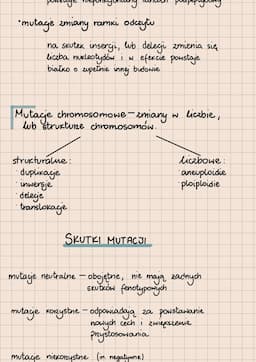 • mutacje zmiany ramki odczytu
na skutek insercji, lub delecji zmienia się
liczba nukleotydów i w efekcie powstaje
białko o zupełnie innej budowie
Mutacje chromosomowe – zmiany w liczbie,
lub strukturze chromosomów.
strukturalne:
liczbowe:
· duplikacje
· aneuploidie
· inwersje
· ploiploidie
· delecje
· translokacje
SKUTKI MUTACJI
mutacje neutralne – obojętne, nie mają żadnych
skutków fenotypowych
mutacje korzystne – odpowiadają za powstawanie
nowych cech i zwiększenie
przystosowania
mutacje niekorzystne (in negatywne)